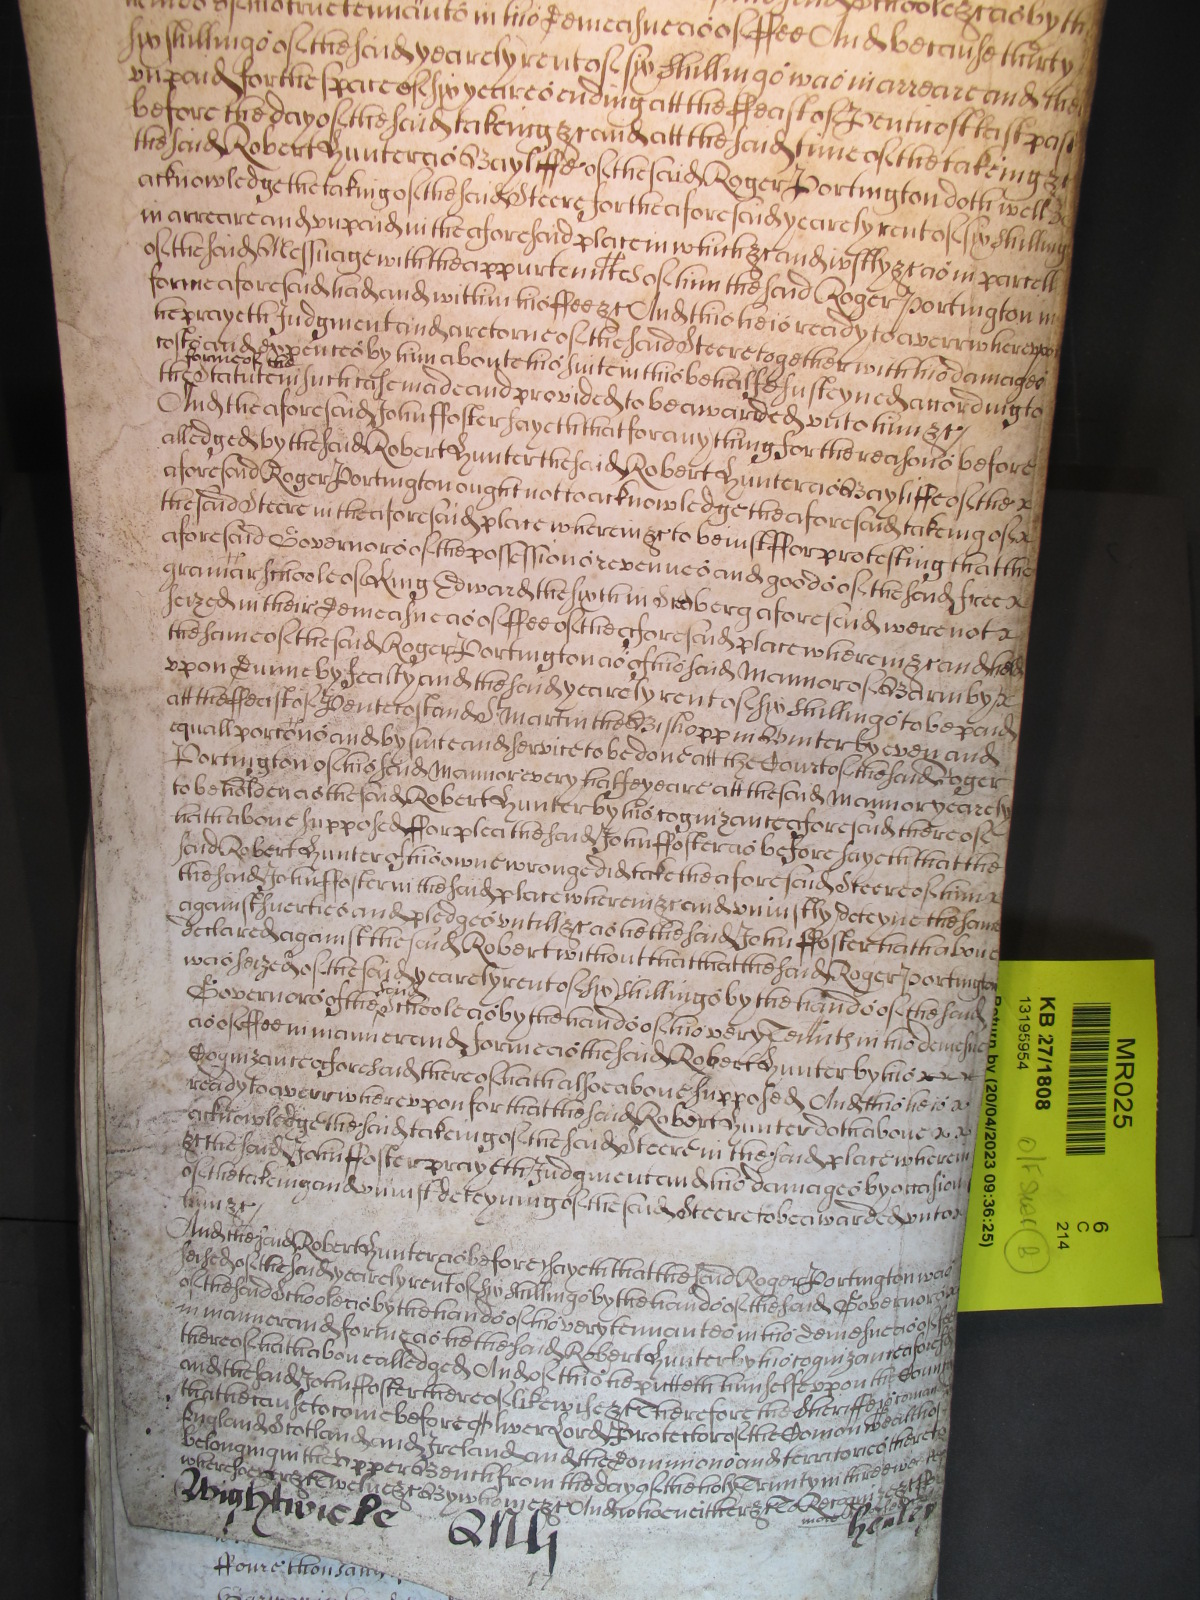 of the said Schoole &c as by th
of his true tennants in his Demeasne as of ffee And because thirty
six shillings of the said yearely rent of six shillings was in arreare and then
unpaid for the space of six yeares ending att the ffeast of Penticost last past
before the day of the said takeing &c and att the said time of the takeing &c
the said Robert Hunter as Bayliffe of the said Roger Portington doth well &c
acknowledge the taking of the said Steere for the aforesaid yearely rent of six shillings
in arreare and unpaid in the aforesaid place in which &c and iustly &c as in parcell
of the said Messuage with the appurtennces of him the said Roger Portington in
forme aforesaid had and within his ffee &c And this he is ready to averr whereupon
he prayeth Judgment and a retorne of the said Steere together with his damages
costs and expences by him about his suite in this behalfe susteyned according to
the forme of the Statute in such case made and provided to be awarded unto him &c/
And the aforesaid John ffoster sayeth that for any thing for the reasons before
alledged by the said Robert Hunter the said Robert Hunter as Bayliffe of the x
aforesaid Roger Portington ought not to acknowledge the aforesaid takeing of x
the said Steere in the aforesaid place wherein &c to be iust ffor protesting that the
aforesaid Governors of the possessions revenues and goods of the said free x
gramar schoole of King Edward the sixth in Sedberg aforesaid were not x
seized in their Demeasne as of ffee of the aforesaid place wherein &c and held
the same of the said Roger Portington as of his said Mannor of Barmby x
upon Dunne by fealty and the said yearely rent of six shillings to be paid
att the ffeasts of Pentecost and St Martin the Bishopp in Winter by even and
equall portons and by suite and service to be done att the Court of the said Roger
Portington of his said Mannor every halfe yeare att the said Mannor yearely
to be holden as the said Robert Hunter by his cognizance aforesaid thereof
hath above supposed ffor plea the said John ffoster as before sayeth that the
said Robert Hunter of his owne wronge did take the aforesaid Steere of him x
the said John ffoster in the said place wherein &c and uniustly deteyne the same
against suerties and pledges untill &c as he the said John ffoster hath above
declared against the said Robert without that that the said Roger Portington
was seized of the said yearely rent of six shillings by the hands of the said
Governors of the said Schoole as by the hands of his very Tennts in his demesne
as of ffee in manner and forme as the said Robert Hunter by his x x x
Cognizance aforesaid thereof hath also above supposed And this he is x
ready to averr whereupon for that the said Robert Hunter doth above x x
acknowledge the said takeing of the said Steere in the said place wherein
&c the said John ffoster prayeth Judgment and his damages by occasion
of the takeing and uniust deteyning of the said Steere to be awarded unto x
him &c/
And the said Robert Hunter as before sayeth that the said Roger Portington was
seized of the said yearely rent of six shillings by the hands of the said Governors x
of the said Schoole as by the hands of his very tennantes in his demesne as of ffee
in manner and forme as he the said Robert Hunter by his cognizance aforesaid
thereof hath above alledged And of this he putteth himselfe upon the Country
and the said John ffoster thereof likewise &c Therefore the Sheriffe is comanded
that he cause to come before Oliver Lord Protector of the Comon Wealth of
England Scotland and Ireland and the Dominions and territories thereto
belonging in the upper Bench from the day of the holy Trinity in three weekes
wheresoever &c Twelve &c By whome &c And who neither &c To Recognize &c
Wightwicke
more
Healey
ffoure thousand
MR025
KB 27/1808
13195954
Return by (20/04/2023 09:36:25)
6
C
214